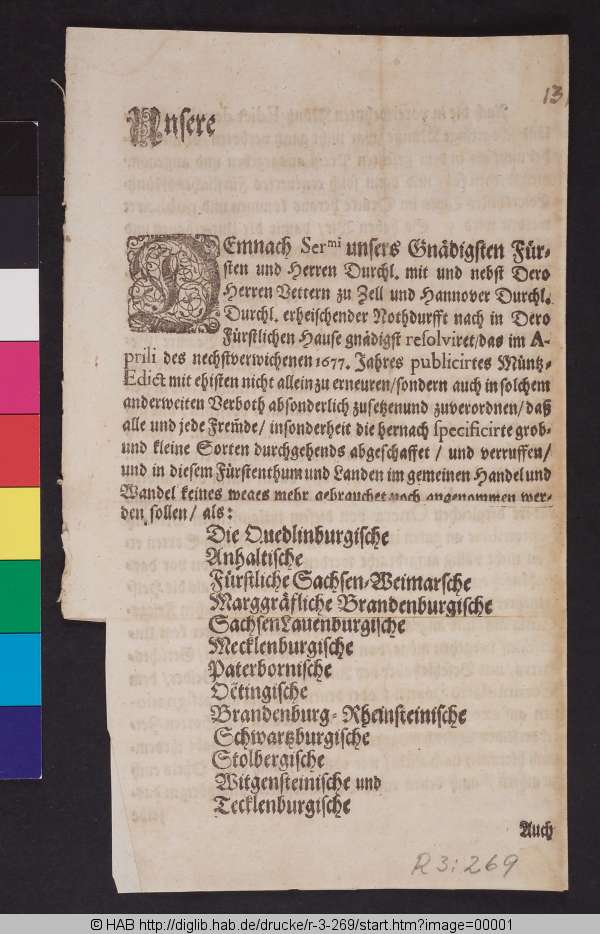 13
Unsere
DEmnach Ser^mi unsers Gnädigsten Für-
sten und Herren Durchl. mit und nebst Dero
Herren Vettern zu Zell und Hannover Durchl.
Durchl. erheischender Nothdurfft nach in Dero
Fürstlichen Hause gnädigst resolviret/das im A-
prili des nechstverwichenen 1677. Jahres publicirtes Müntz-
Edict mit ehisten nicht allein zu erneuren/sondern auch in solchem
anderweiten Verboth absonderlich zusetzen und zuverordnen/daß
alle und jede Fremde/ insonderheit die hernach specificirte grob-
und kleine Sorten durchgehends abgeschaffet / und verruffen/
und in diesem Fürstenthum und Landen im gemeinen Handel und
Wandel keines weges mehr gebrauchet noch angenommen wer-
den sollen/ als:
Die Quedlinburgische
Anhaltische
Fürstliche Sachsen-Weimarsche
Marggräfliche Brandenburgische
Sachsen Lauenburgische
Mecklenburgische
Paterbornische
Oëtingische
Brandenburg-Rheinsteinische
Schwartzburgische
Stolbergische
Witgensteinische und
Tecklenburgische
Auch
R3:269
© HAB http://diglib.hab.de/drucke/r-3-269/start.htm?image=00001